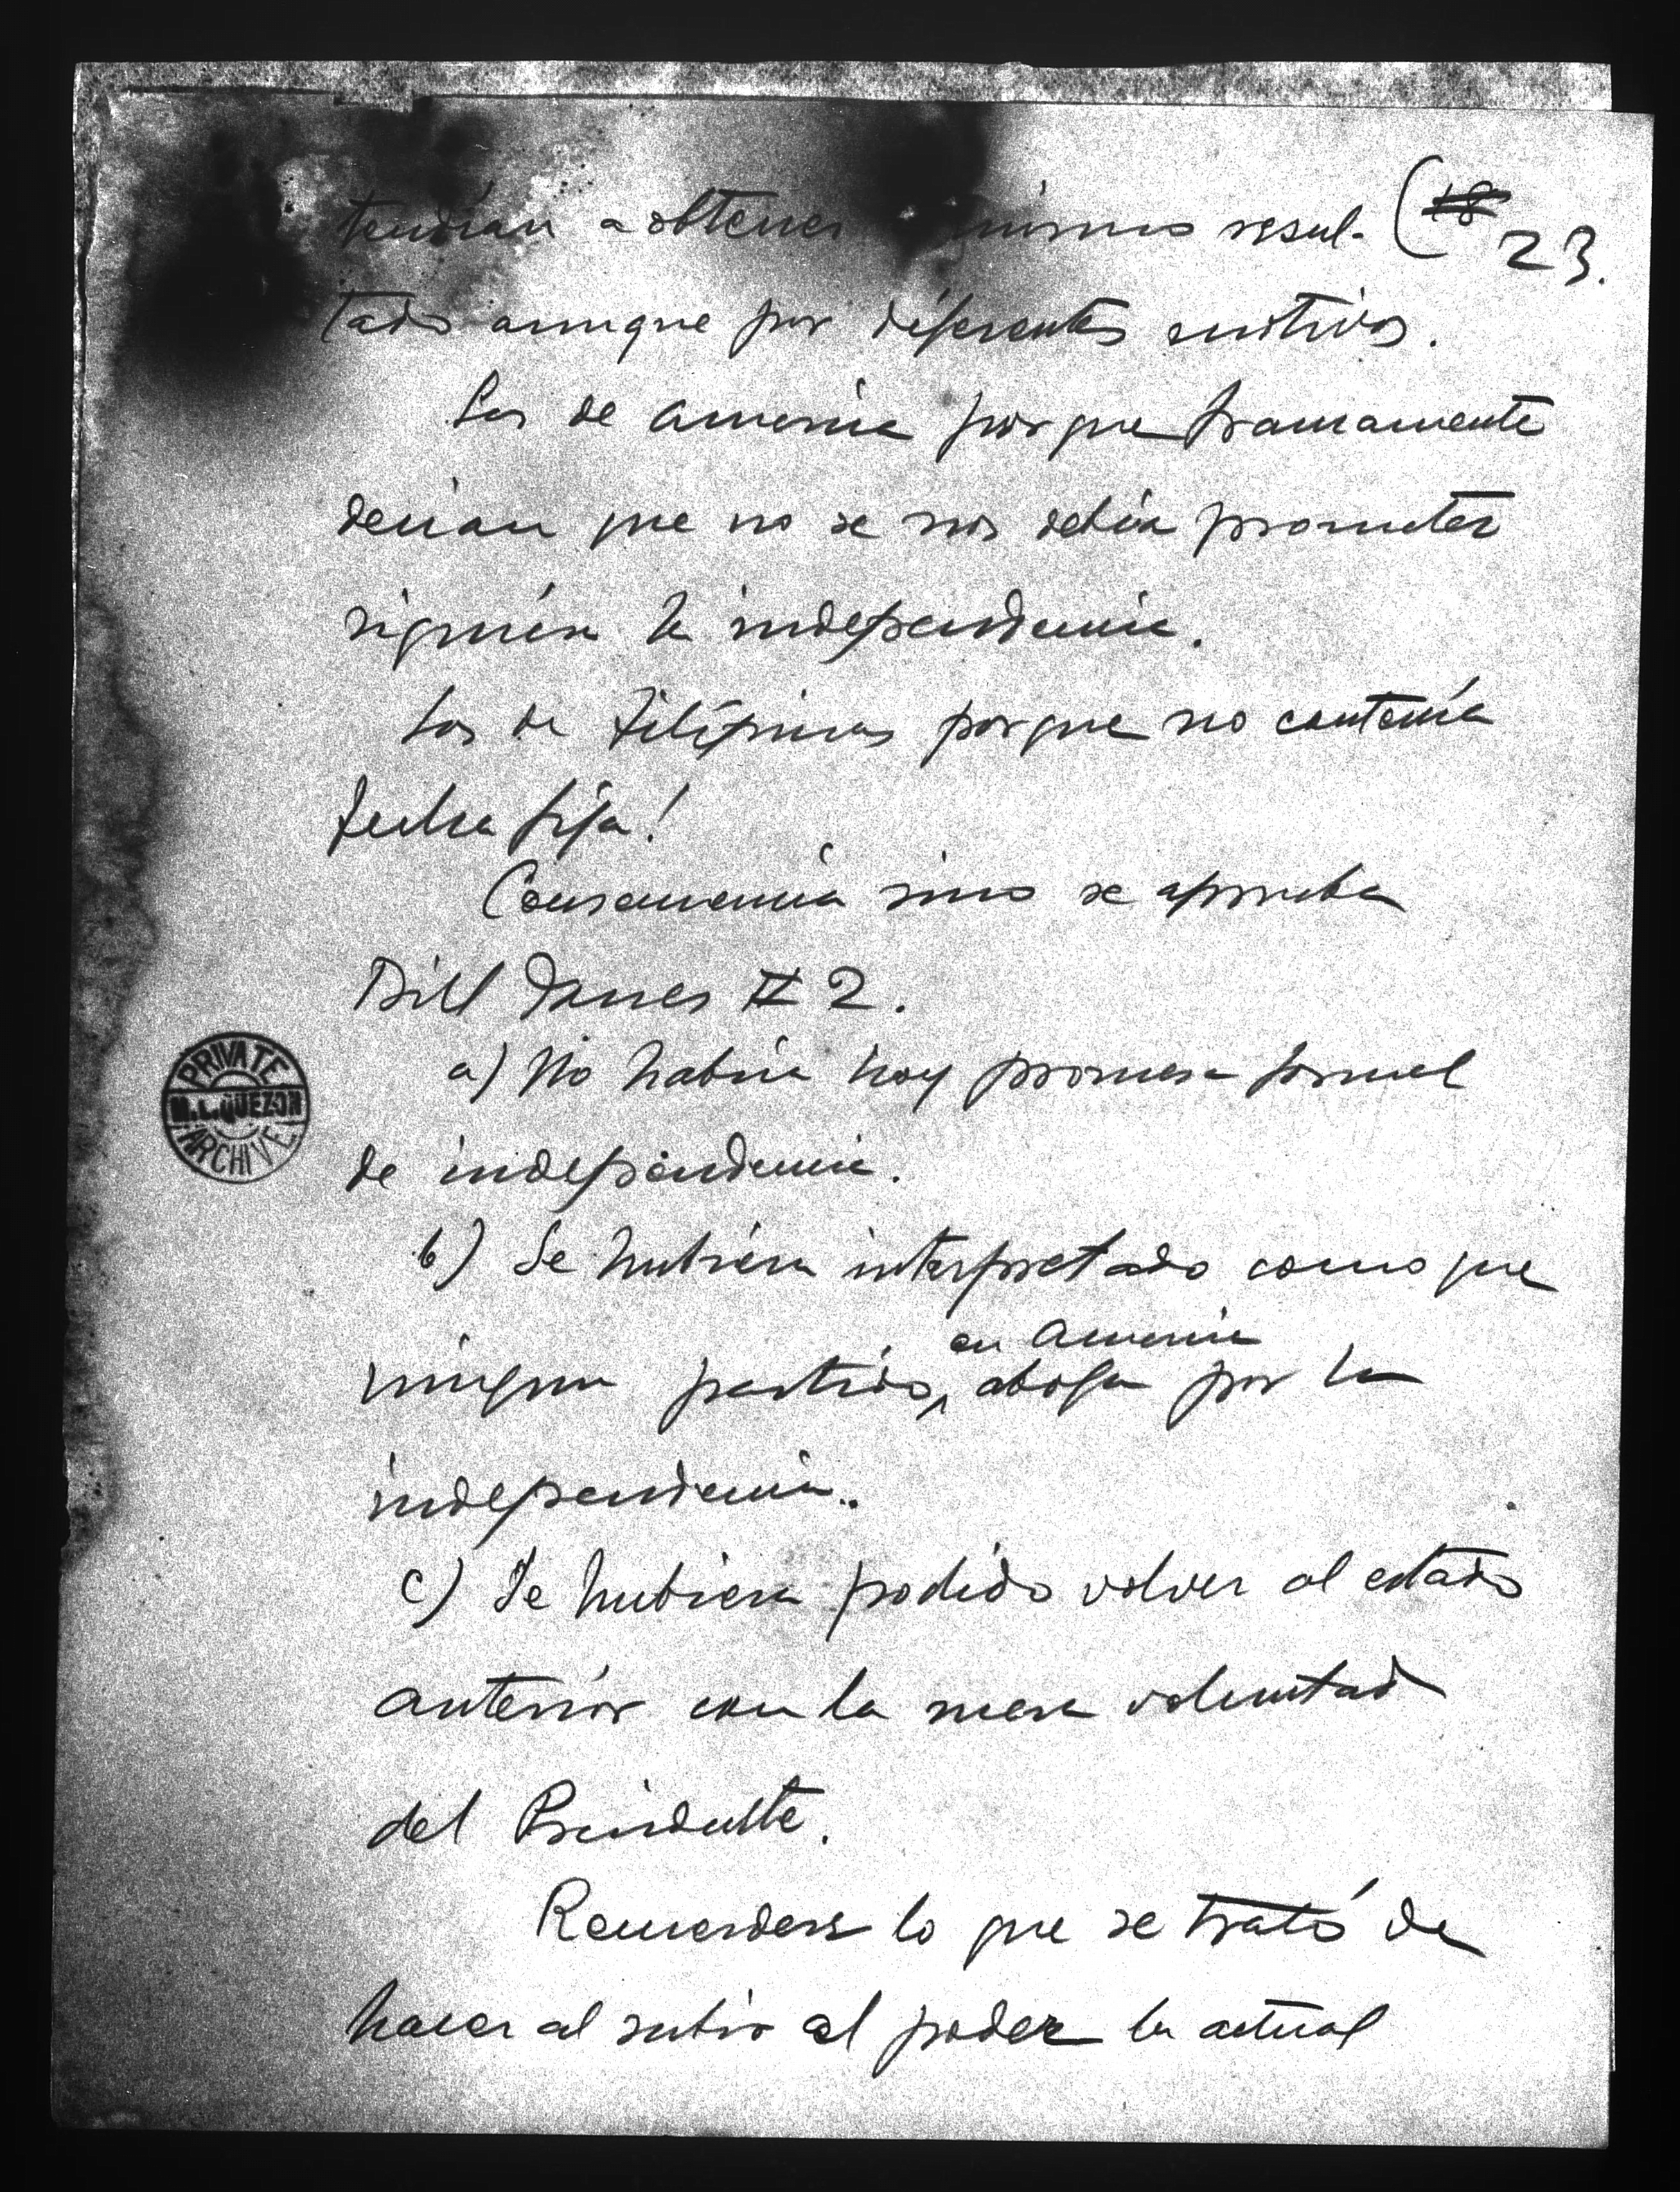 (18 23.
tendían a obtener mismo resul-
tado aunque por diferentes motivos.
Los de America porque francamente
decian que no se nos debía prometer
siquiera la independencia.
Los de Filipinas porque no contenía
fecha fija!
Consecuencia sino se aprueba
Bill Jones # 2.
a) No habría hoy promesa formal
de independencia.
b) Se hubiera interpretado como que
en America
ningun partido, aboga por la
independencia.
c) Se hubiera podido volver al estado
anterior con la mera voluntad
del Presidente.
Recuerdese lo que se trató de
hacer al subir al poder la actual
PRIVATE
M.L. QUEZON
ARCHIVE